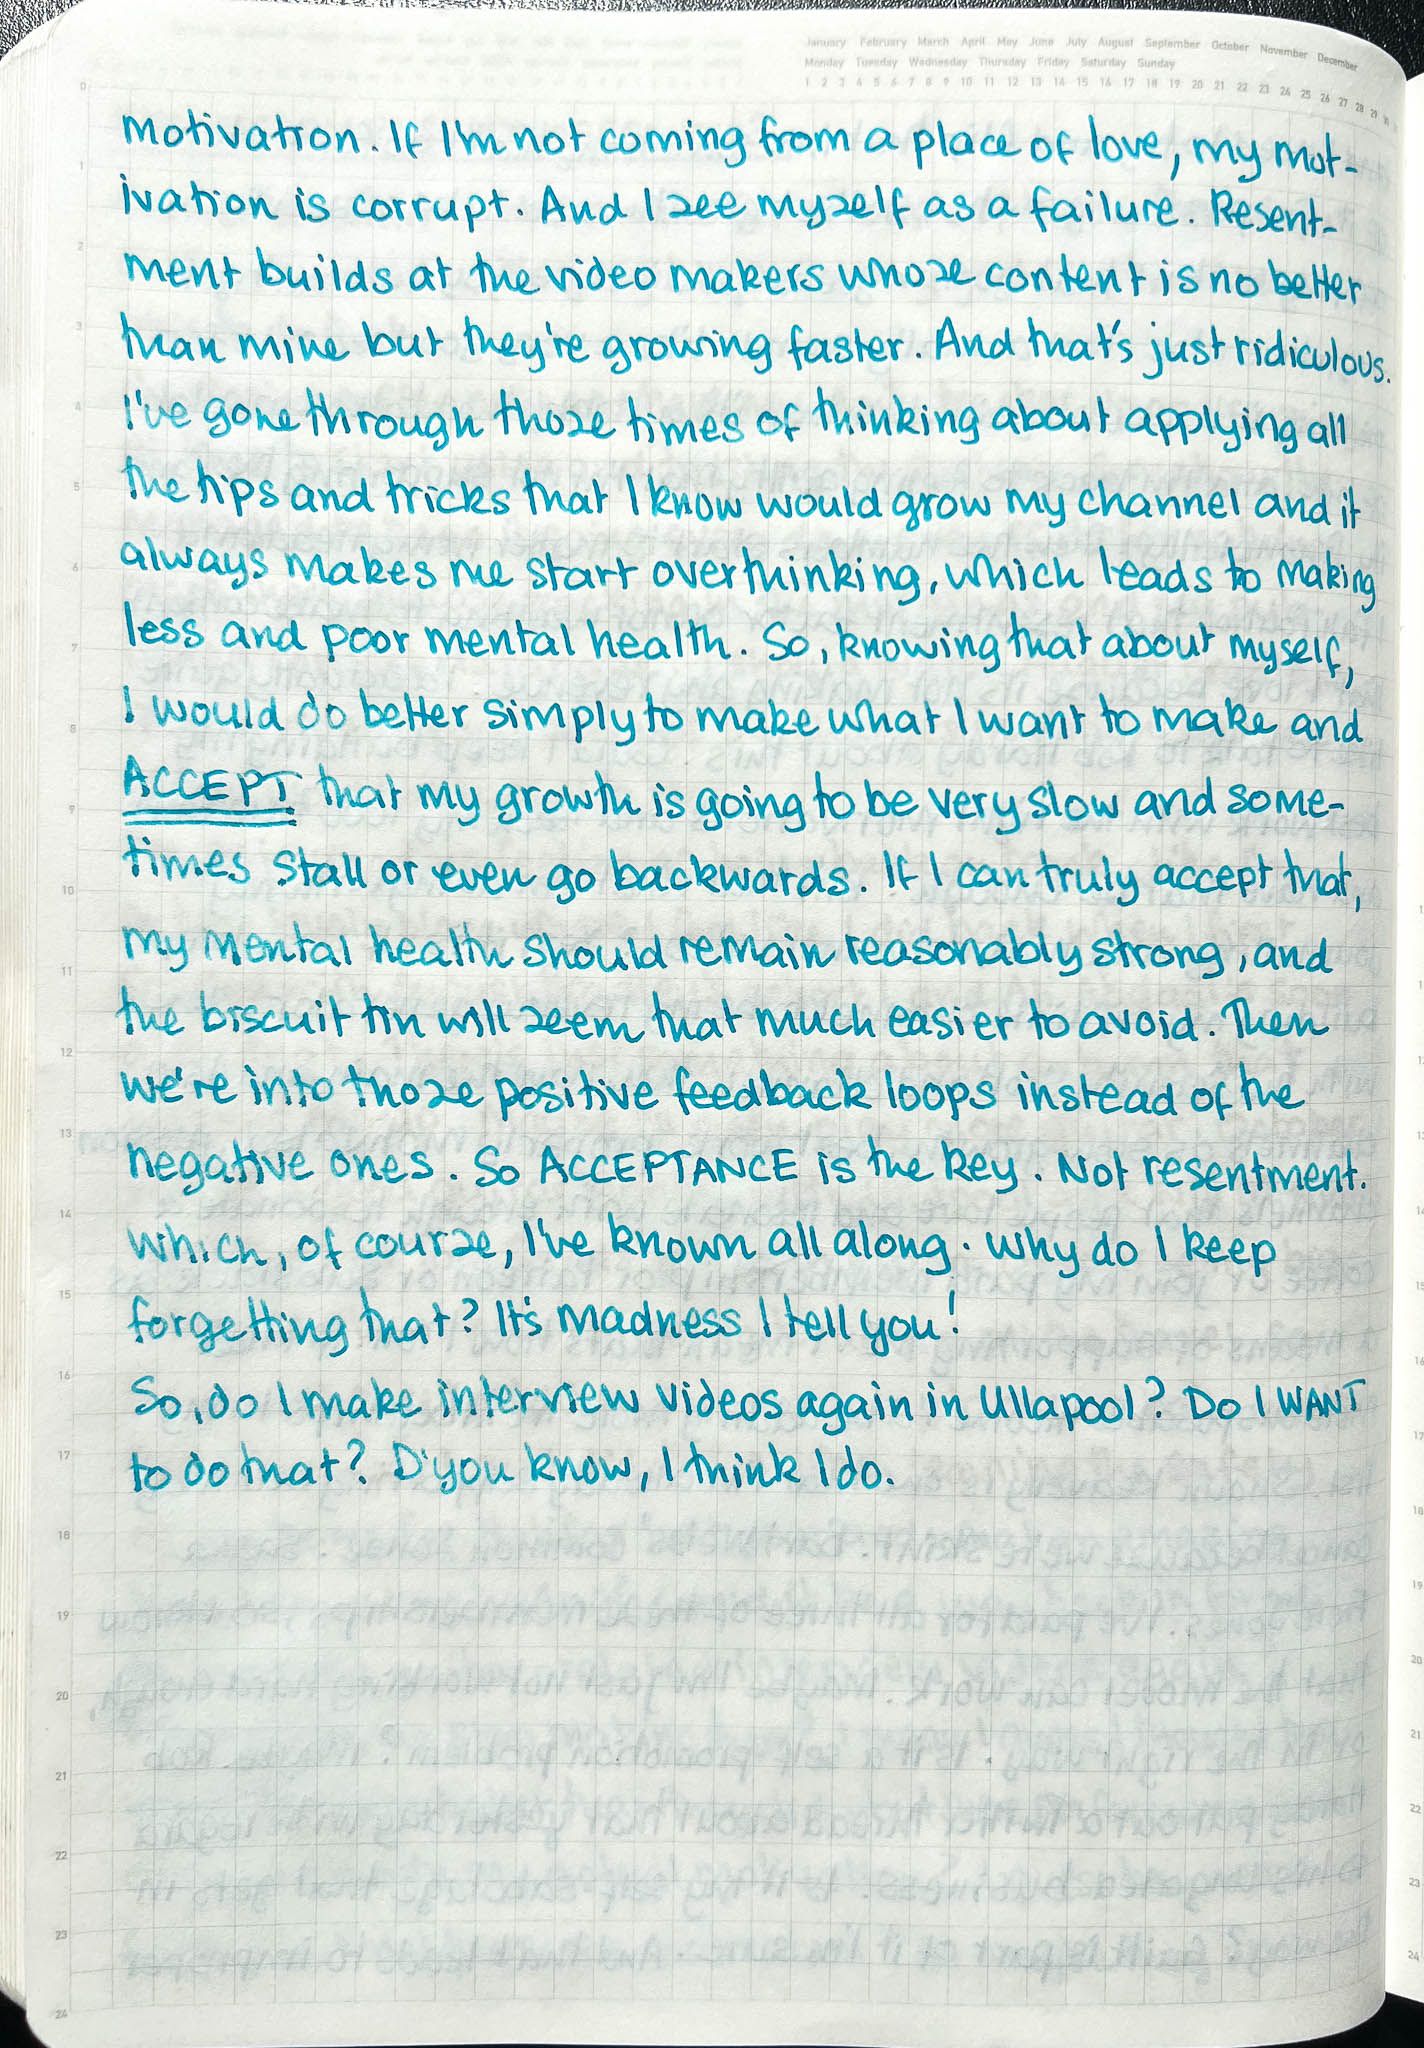 January February March April May June July August September October November December
Monday Tuesday Wednesday Thursday Friday Saturday Sunday
1 2 3 4 5 6 7 8 9 10 11 12 13 14 15 16 17 18 19 20 21 22 23 24 25 26 27 28 29 30
0
motivation. If I'm not coming from a place of love, my mot-
1
ivation is corrupt. And I see myself as a failure. Resent-
2
ment builds at the video makers whose content is no better
3
than mine but they're growing faster. And that's just ridiculous.
4
I've gone through those times of thinking about applying all
5
the tips and tricks that I know would grow my channel and it
6
always makes me start overthinking, which leads to making
7
less and poor mental health. So, knowing that about myself,
8
I would do better simply to make what I want to make and
9
ACCEPT that my growth is going to be very slow and some-
times stall or even go backwards. If I can truly accept that,
10
my mental health should remain reasonably strong, and
11
the biscuit tin will seem that much easier to avoid. Then
12
we're into those positive feedback loops instead of the
13
negative ones. So ACCEPTANCE is the key. Not resentment.
14
Which, of course, I've known all along. Why do I keep
15
forgetting that? It's madness I tell you!
16
So, do I make interview videos again in Ullapool? Do I WANT
17
to do that? D'you know, I think I do.
18
19
20
21
22
23
24